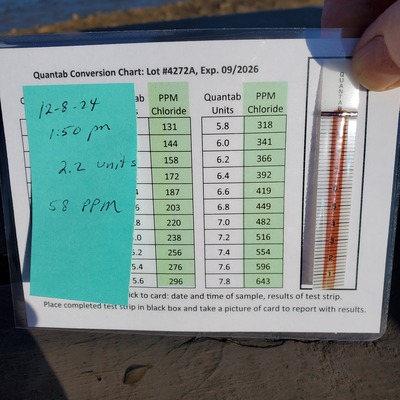 Quantab Conversion Chart: Lot #4272A, Exp. 09/2026
12-8-24
1:50 pm
2.2 units
58 PPM
PPM Chloride
131
144
158
172
187
203
220
238
256
5.4 276
5.6 296
Quantab Units PPM Chloride
5.8 318
6.0 341
6.2 366
6.4 392
6.6 419
6.8 449
7.0 482
7.2 516
7.4 554
7.6 596
7.8 643
QUANTAB
to card: date and time of sample, results of test strip.
Place completed test strip in black box and take a picture of card to report with results.